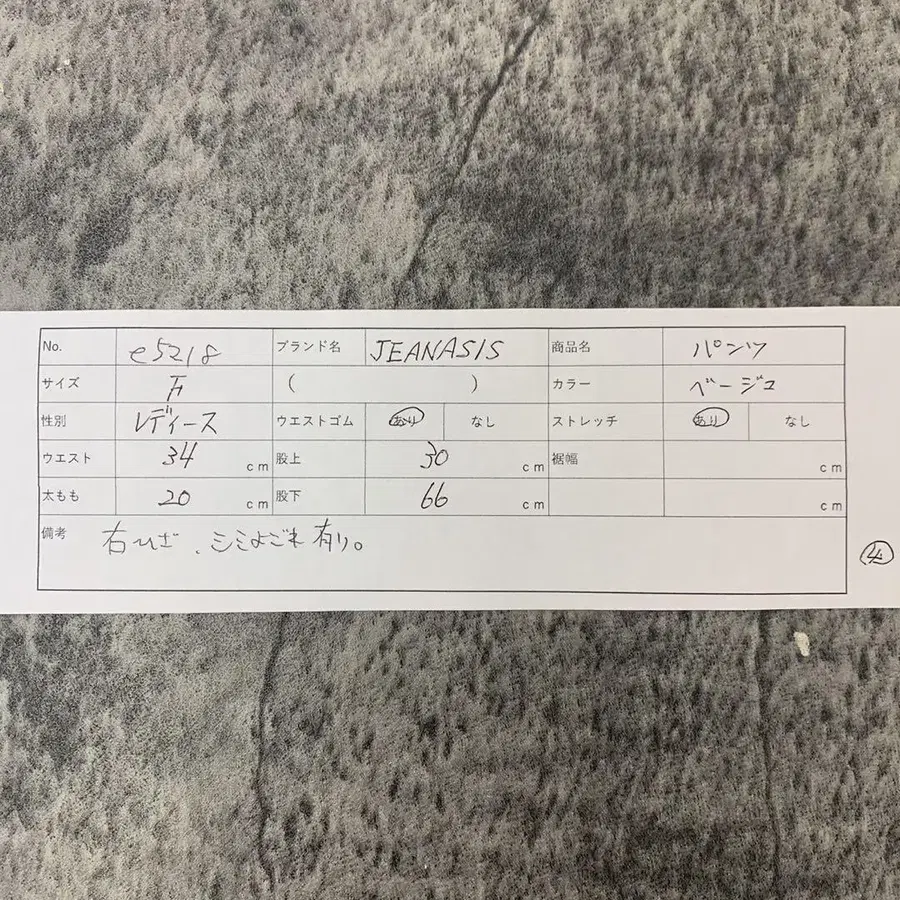 No. e5218 ブランド名 JEANASIS 商品名 パンツ
サイズ F ( ) カラー ベージュ
性別 レディース ウエストゴム あり なし ストレッチ あり なし
ウエスト 34 cm 股上 30 cm 裾幅 cm
太もも 20 cm 股下 66 cm cm
備考 右ひざ、シミよごれ有り。
④